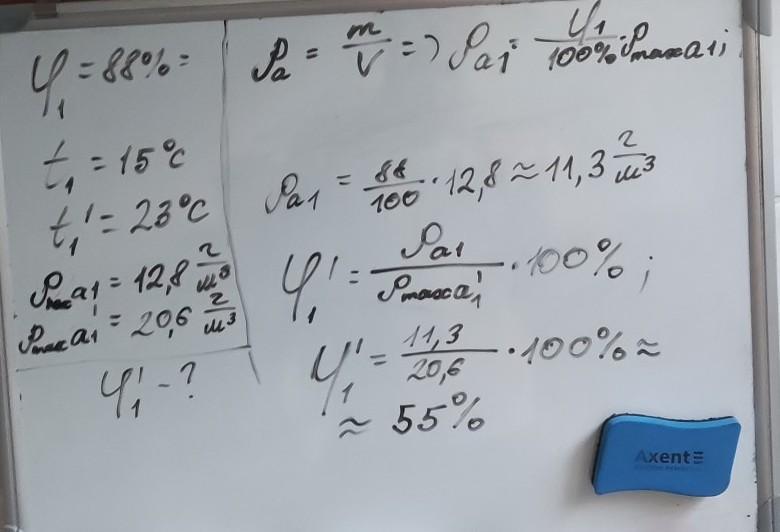 φ₁ = 88% =
t₁ = 15°C
t₁' = 23°C
ρmax a1 = 12,8 г/м³
ρmax a1' = 20,6 г/м³
φ₁' - ?
ρa = m/V => ρa1 = φ₁/100% · ρmax a1;
ρa1 = 88/100 · 12,8 ≈ 11,3 г/м³
φ₁' = ρa1/ρmax a1' · 100%;
φ₁' = 11,3/20,6 · 100% ≈
≈ 55%
Axent